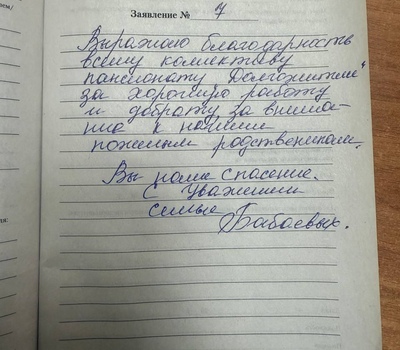 Заявление № 7
Выражаю благодарность
всему коллективу
пансионату Долгожители"
за хорошую работу
и доброту за внима-
ние к нашим
пожилым родственикам.
Вы наше спасение.
С уважением
семья
Бабаевых.